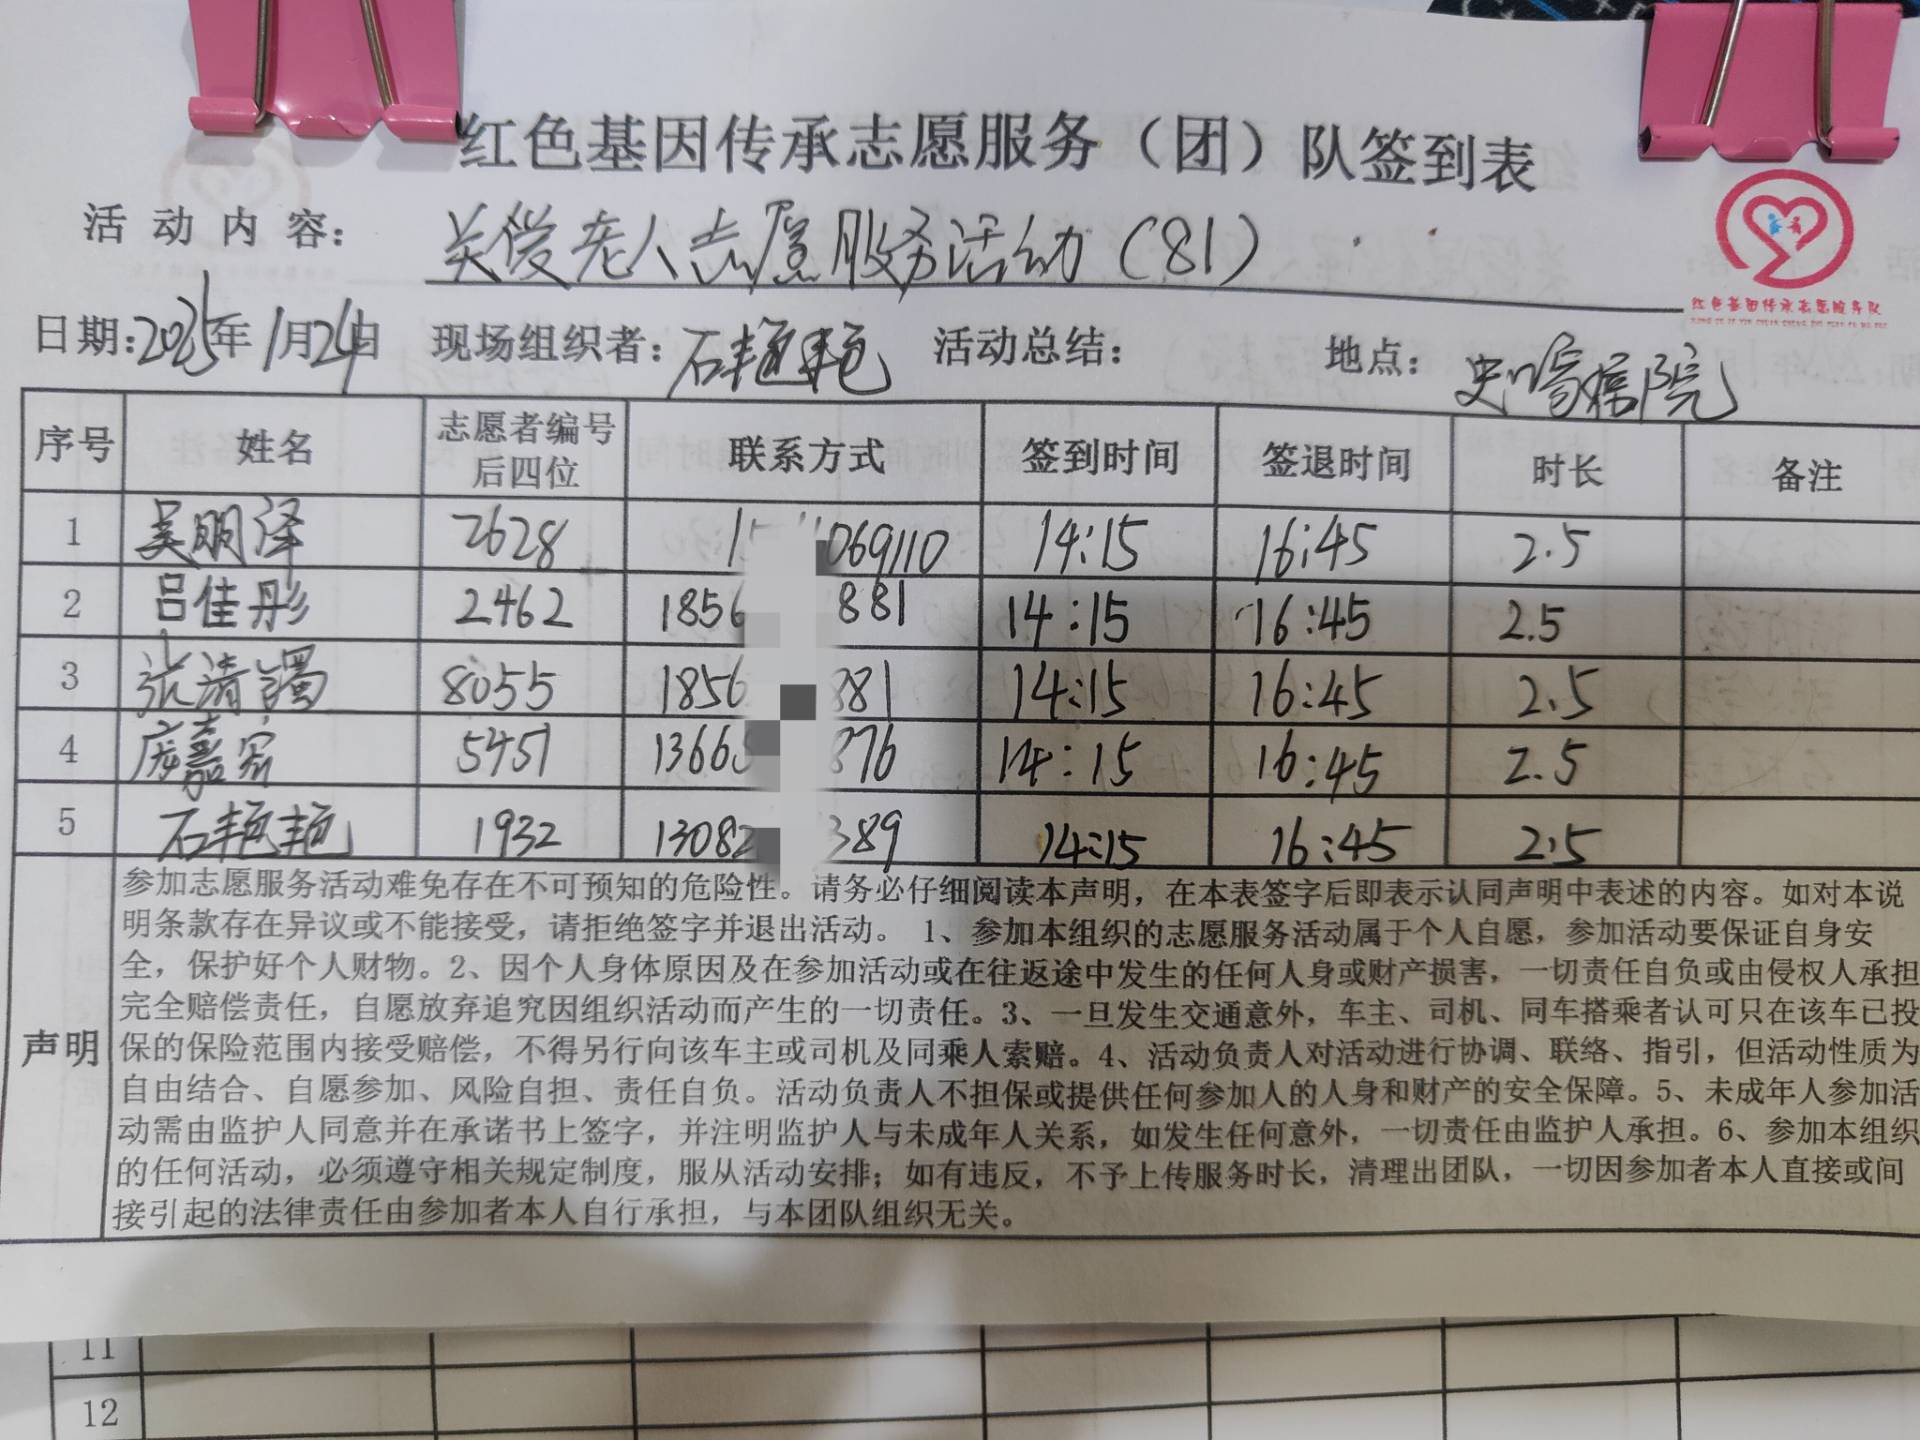 红色基因传承志愿服务（团）队签到表
活动内容： 关爱老人志愿服务活动（81）
红色基因传承志愿服务队
日期：2025年1月24日 现场组织者：石艳艳 活动总结： 地点：
序号 姓名 志愿者编号后四位 联系方式 签到时间 签退时间 时长 备注
1 吴明泽 2628 15 069110 14:15 16:45 2.5
2 吕佳彤 2462 1856 881 14:15 16:45 2.5
3 张清 8055 1856 881 14:15 16:45 2.5
4 庞嘉 5451 13665 876 14:15 16:45 2.5
5 石艳艳 1932 13082 389 14:15 16:45 2.5
声明
参加志愿服务活动难免存在不可预知的危险性。请务必仔细阅读本声明，在本表签字后即表示认同声明中表述的内容。如对本说
明条款存在异议或不能接受，请拒绝签字并退出活动。 1、参加本组织的志愿服务活动属于个人自愿，参加活动要保证自身安
全，保护好个人财物。2、因个人身体原因及在参加活动或在往返途中发生的任何人身或财产损害，一切责任自负或由侵权人承担
完全赔偿责任，自愿放弃追究因组织活动而产生的一切责任。3、一旦发生交通意外，车主、司机、同车搭乘者认可只在该车已投
保的保险范围内接受赔偿，不得另行向该车主或司机及同乘人索赔。4、活动负责人对活动进行协调、联络、指引，但活动性质为
自由结合、自愿参加、风险自担、责任自负。活动负责人不担保或提供任何参加人的人身和财产的安全保障。5、未成年人参加活
动需由监护人同意并在承诺书上签字，并注明监护人与未成年人关系，如发生任何意外，一切责任由监护人承担。6、参加本组织
的任何活动，必须遵守相关规定制度，服从活动安排；如有违反，不予上传服务时长，清理出团队，一切因参加者本人直接或间
接引起的法律责任由参加者本人自行承担，与本团队组织无关。
11
12